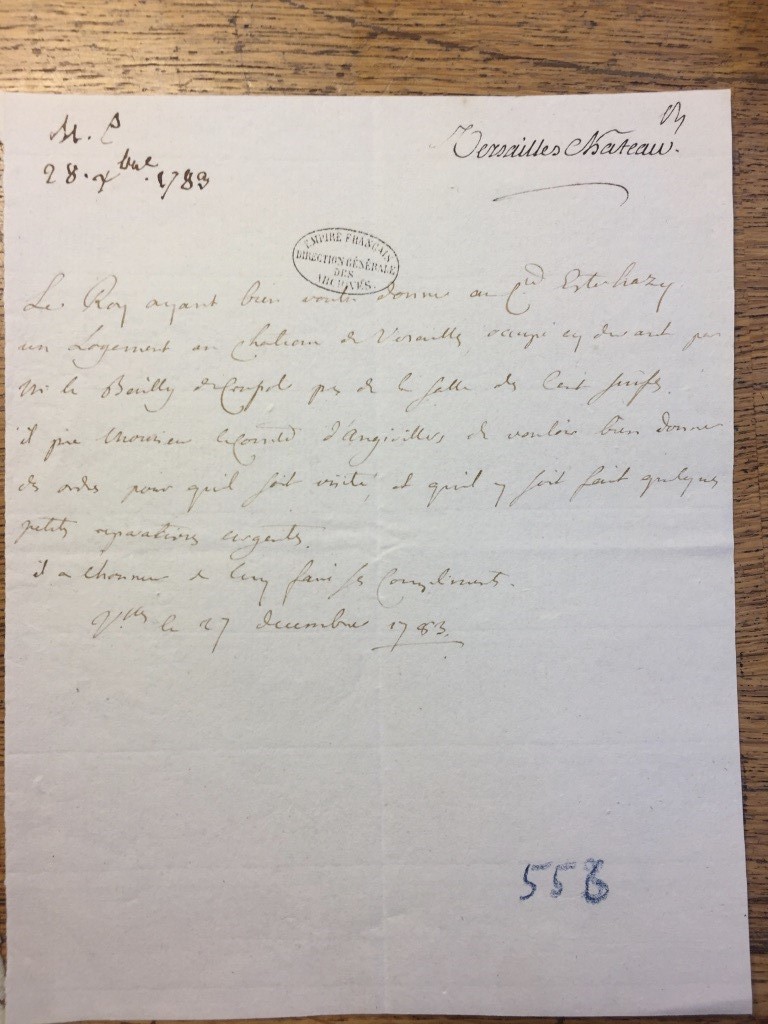 M. P
28. Xbre. 1783
Versailles Château.
EMPIRE FRANÇAIS
DIRECTION GÉNÉRALE
DES
ARCHIVES
Le Roy ayant bien voulu donner au Cte Esterhazy
un Logement au Chateau de Versailles occupé cy devant par
Mr le Bailly de Crussol pres de la Salle des Cent Suisses.
il prie Monsieur le Comte d'Angiviller de vouloir bien donner
des ordres pour quil soit visité, et quil y soit fait quelques
petites reparations urgentes.
il a lhonneur de luy faire ses Compliments.
Vlles le 27 decembre 1783.
558